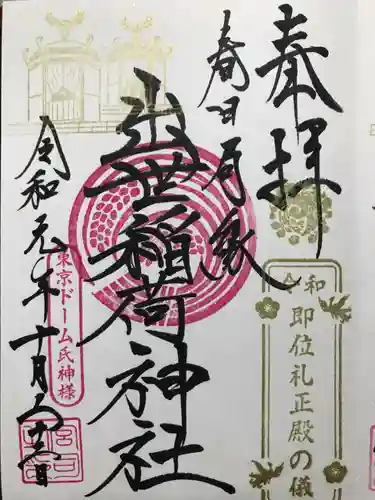 奉拝
春日局縁
出世稲荷神社
令和元年十月二十六日
東京ドーム氏神様
令和
即位礼正殿の儀